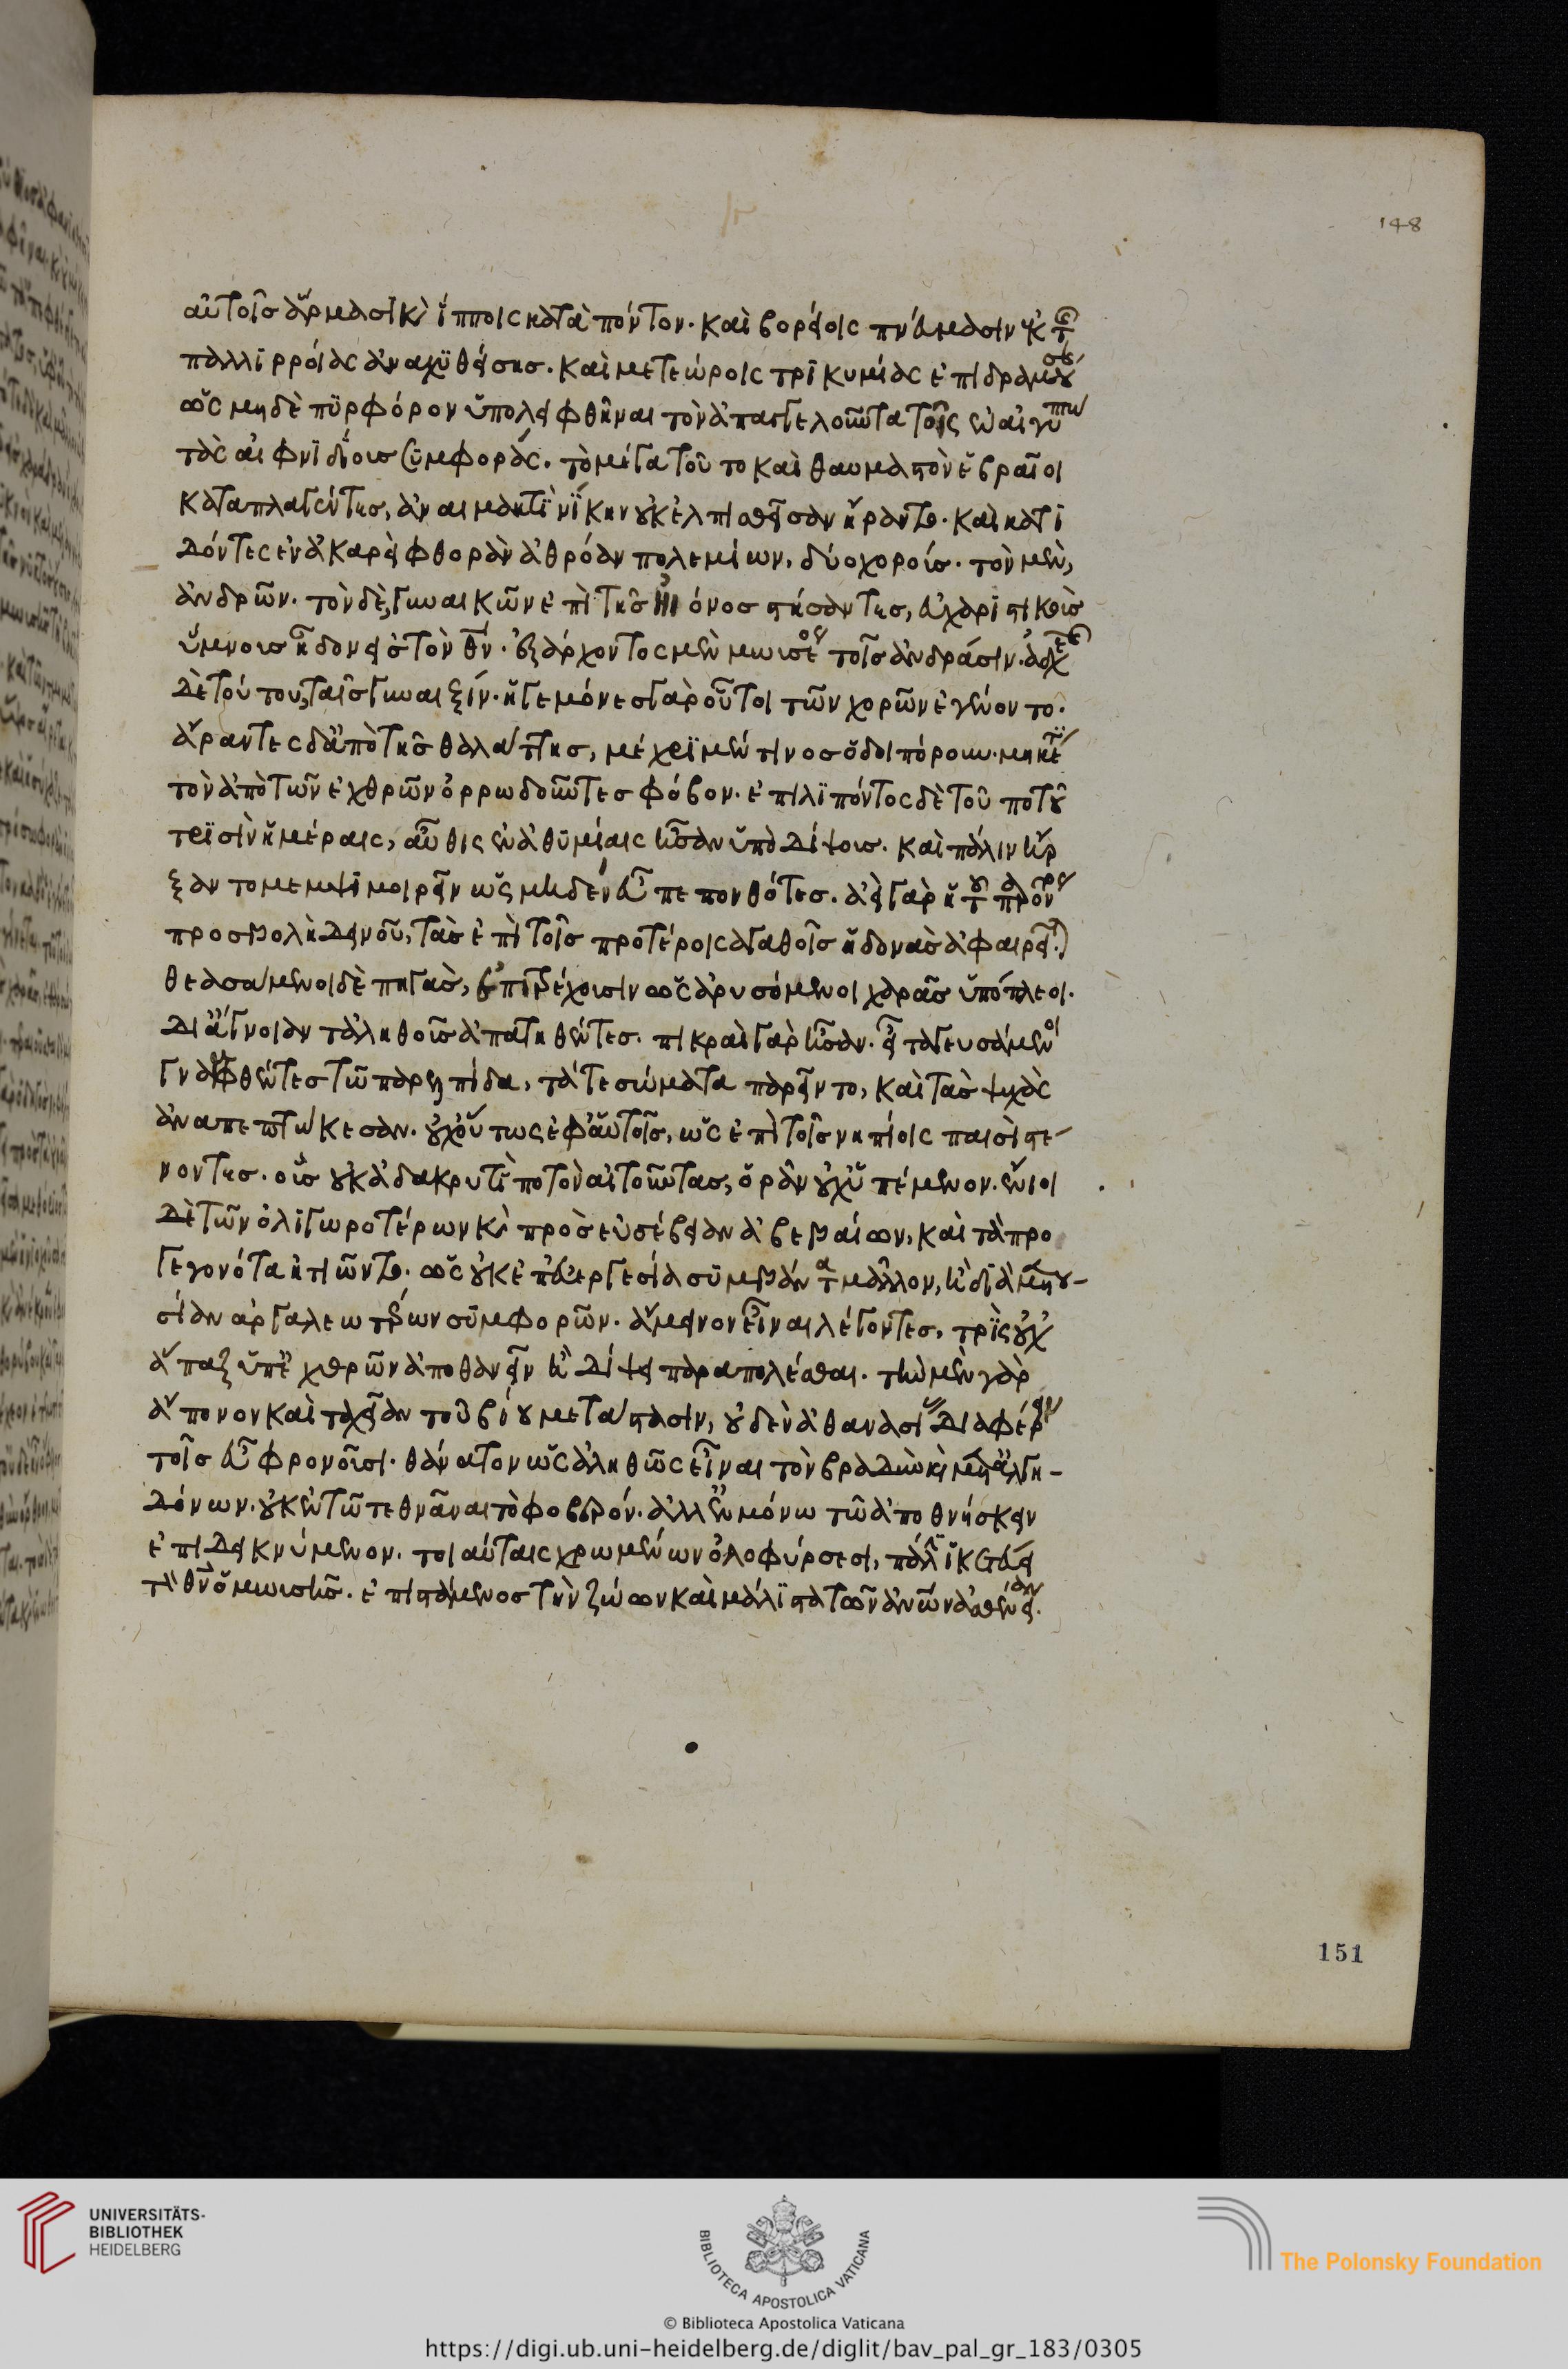 αὐτοῖς ἅρμασι κ̀ ἵπποις κατὰ πόντον. καὶ βορείοις πνεύμασιν ἐκ τῆς
παλλιρροίας ἀναχυθείσης. καὶ μετεώροις τρικυμίας ἐπιδραμούσ
ὡς μηδὲ πυρφόρον ὑπολειφθῆναι τὸν ἀπαγγελοῦντα τοῖς ἐν αἰγύπτω
τὰς αἰφνιδίους συμφοράς. τὸ μέγα τοῦτο καὶ θαυμαστὸν ἑβραῖοι
καταπλαγέντες, ἀναιμακτὶ νίκην οὐκ ἐλπισθεῖσαν ἤραντο. καὶ κατι
δόντες ἐν ἀκαρεῖ φθορὰν ἀθρόαν πολεμίων, δύο χορούς. τὸν μὲν,
ἀνδρῶν. τὸν δὲ, γυναικῶν ἐπὶ τῆς ἠιόνος στήσαντες, εὐχαριστικοὺς
ὕμνους ἦδον εἰς τὸν θν. ἐξάρχοντος μὲν μωυσέος τοῖς ἀνδράσιν. ἀδελφῆς
δὲ τούτου, ταῖς γυναιξίν. ἡγεμόνες γὰρ οὗτοι τῶν χορῶν ἐγένοντο.
ἄραντες δ᾽ ἀπὸ τῆς θαλάττης, μέχρι μέν τινος ὁδοιπόρουν. μηκέτι
τὸν ἀπὸ τῶν ἐχθρῶν ὀρρωδοῦντες φόβον. ἐπιλιπόντος δὲ τοῦ ποτοῦ
τρισὶν ἡμέραις, αὖθις ἐν ἀθυμίαις ἦσαν ὑπὸ δίψους. καὶ πάλιν ἤρ
ξαντο μεμψιμοιρεῖν ὡς μηδὲν εὖ πεπονθότες. ἀεὶ γὰρ ἡ τοῦ παρόντος
προσβολὴ δεινοῦ, τὰς ἐπὶ τοῖς προτέροις ἀγαθοῖς ἡδονὰς ἀφαιρεῖται.
θεασάμενοι δὲ πηγὰς, ἐπιτρέχουσιν ὡς ἀρυσόμενοι χαρᾶς ὑπόπλεοι.
δι᾽ ἄγνοιαν τἀληθοῦς ἀπατηθέντες. πικραὶ γὰρ ἦσαν. εἶτα γευσάμενοι
γναμφθέντες τῶ παρ᾽ ἐλπίδα, τά τε σώματα παρεῖντο, καὶ τὰς ψυχὰς
ἀναπεπτώκεσαν. οὐχ οὕτως ἐφ᾽ αὑτοῖς, ὡς ἐπὶ τοῖς νηπίοις παισὶ στέ
νοντες. οὓς οὐκ ἀδακρυτὶ ποτὸν αἰτοῦντας, ὁρᾶν οὐχ ὑπέμενον. ἔνιοι
δὲ τῶν ὀλιγωροτέρων κ̀ πρὸς εὐσέβειαν ἀβεβαίων, καὶ τὰ προ
γεγονότα ἠτιῶντο. ὡς οὐκ ἐπ᾽ εὐεργεσία συμβάντα μᾶλλον, ἢ διὰ μετου
σίαν ἀργαλεωτέρων συμφορῶν. ἄμεινον εἶναι λέγοντες, τρὶς οὐχ
ἅπαξ ὑπ᾽ ἐχθρῶν ἀποθανεῖν ἢ δίψει παραπολέσθαι. τὴν μὲν γὰρ
ἄπονον καὶ ταχεῖαν τοῦ βίου μετάστασιν, οὐδὲν ἀθανασίας διαφέρειν
τοῖς εὖ φρονοῦσι. θάνατον ὡς ἀληθῶς εἶναι τὸν βραδὺν κ̀ μετ᾽ ἀλγη
δόνων. οὐκ ἐν τῶ τεθνᾶναι τὸ φοβερόν. ἀλλ᾽ ἐν μόνω τῶ ἀποθνήσκειν
ἐπιδεικνύμενον. τοιαύταις χρωμένων ὀλοφύρσεσι, πάλιν ἱκετεύει
τὸν θν ὁ μωυσῆς. ἐπιστάμενος τὴν ζώων καὶ μάλιστα τῶν ἀνων ἀσθένειαν.
148
151
UNIVERSITÄTS-
BIBLIOTHEK
HEIDELBERG
BIBLIOTECA APOSTOLICA VATICANA
The Polonsky Foundation
© Biblioteca Apostolica Vaticana
https://digi.ub.uni-heidelberg.de/diglit/bav_pal_gr_183/0305